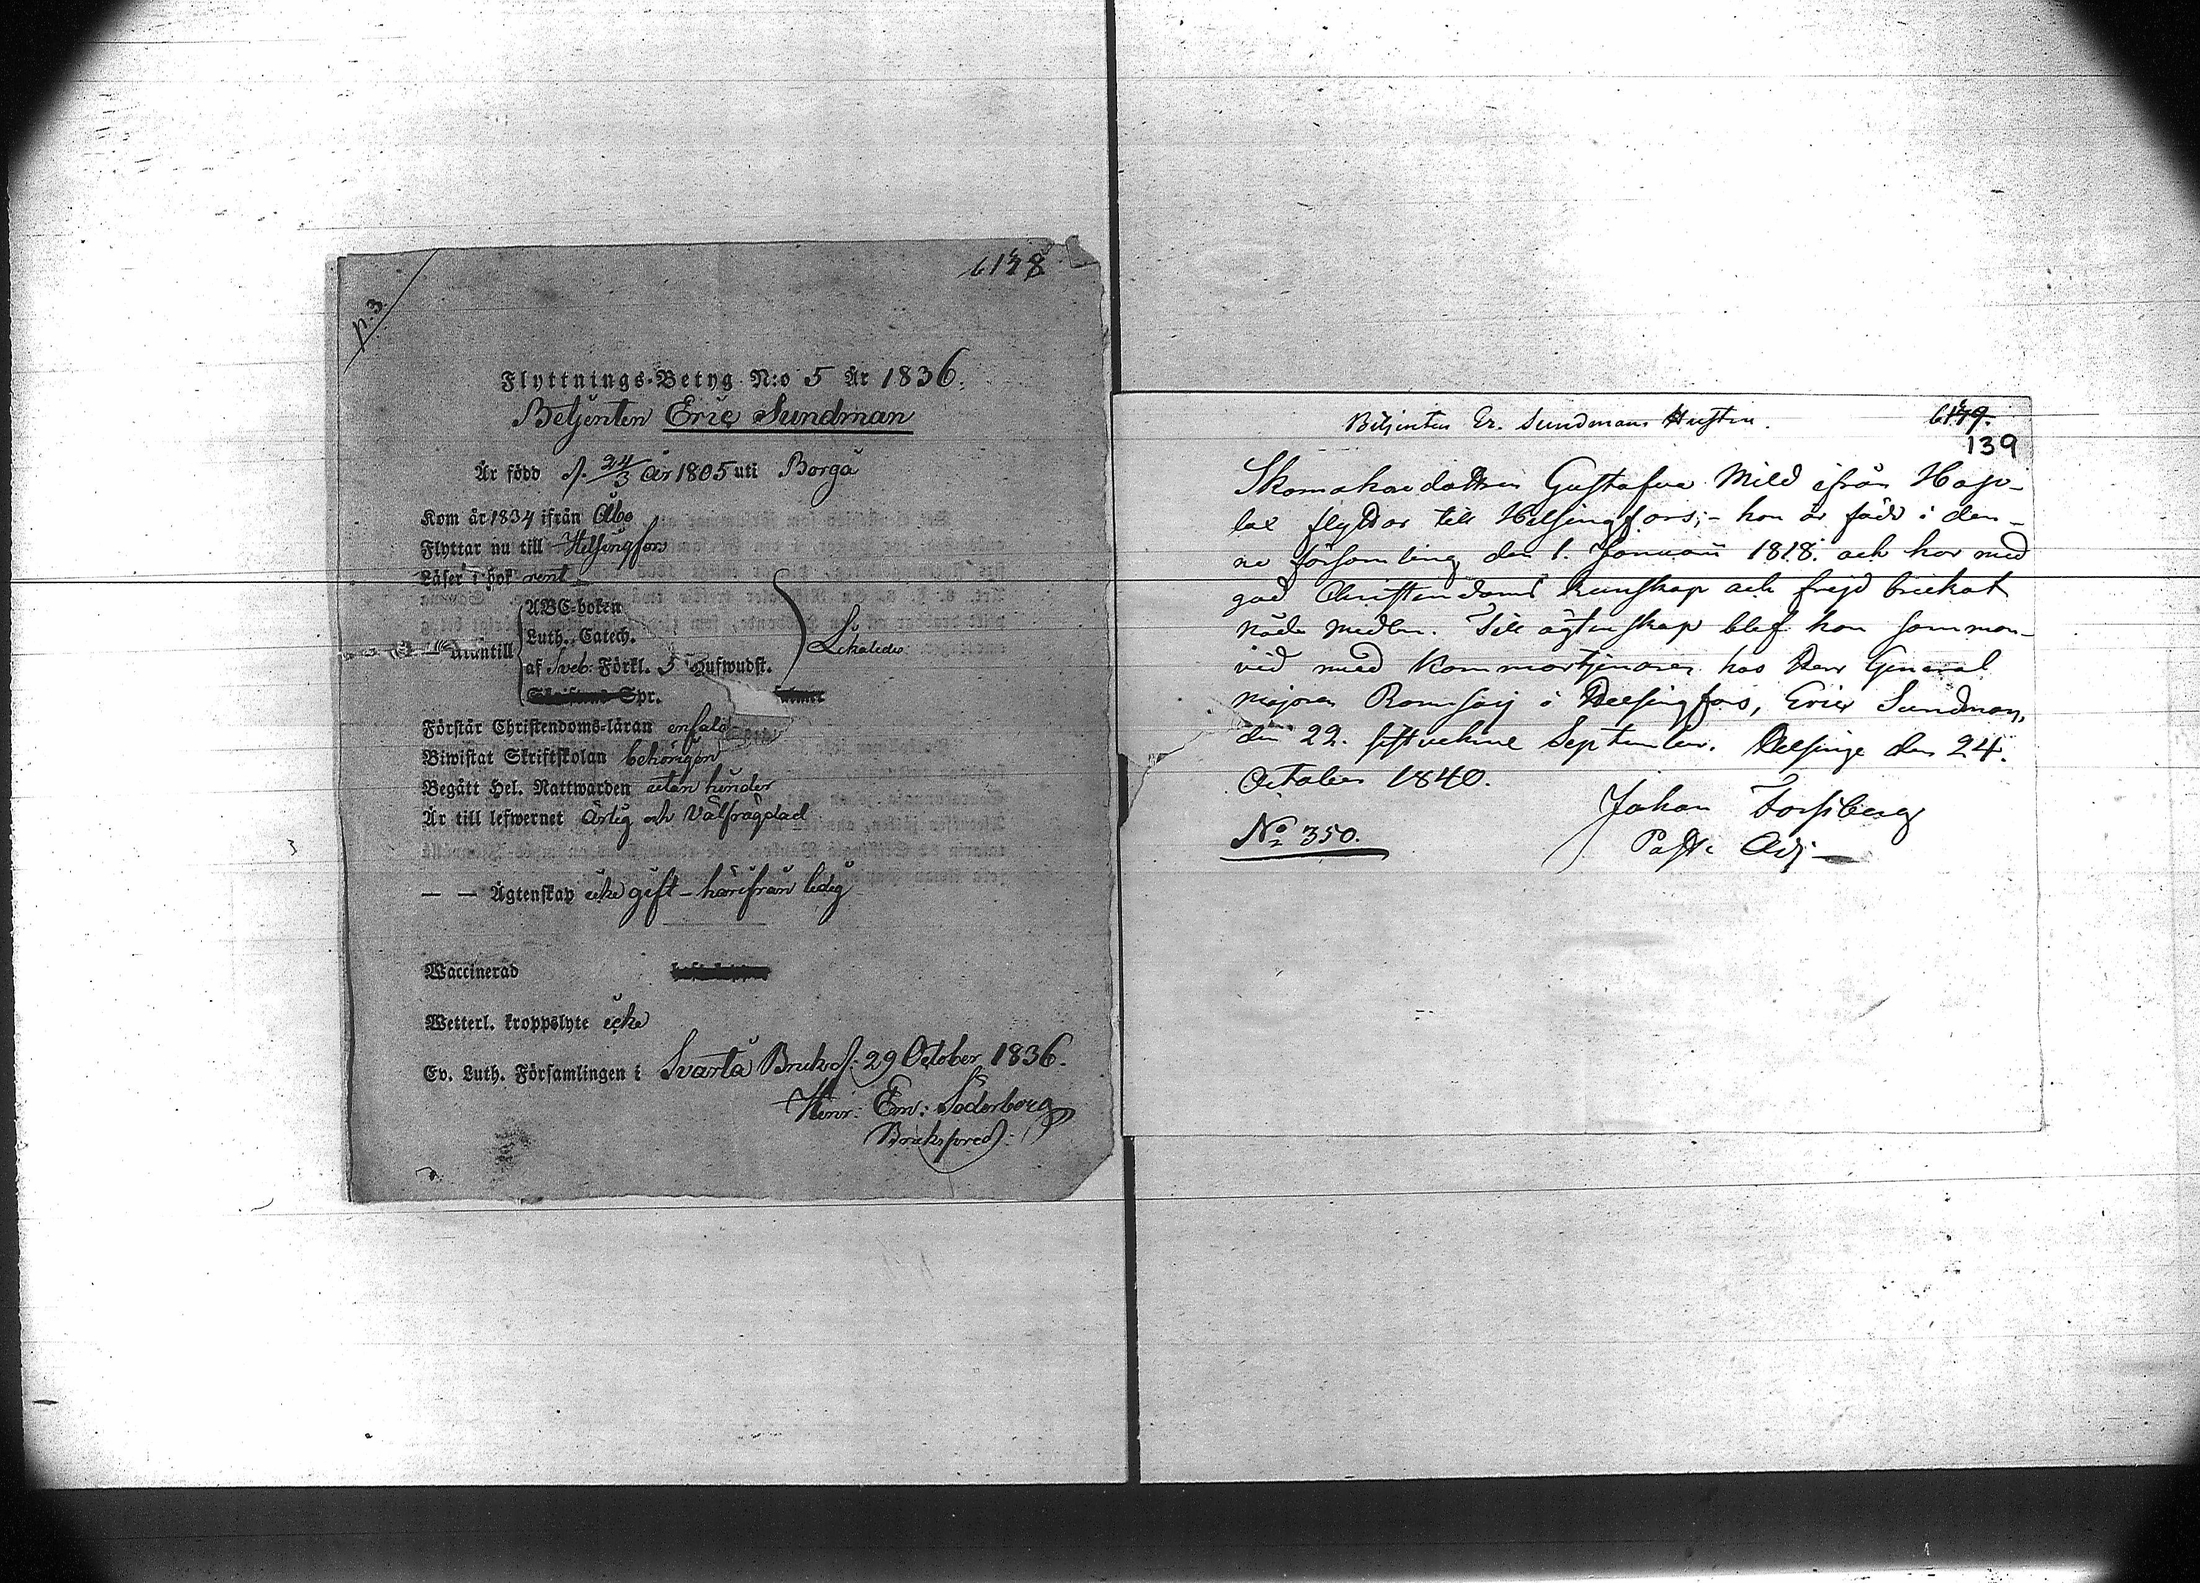 6178
p. 3
Flyttnings-Betyg N:o 5 År 1836.
Betjenten Eric Sundman
Är född d. 24/3 År 1805 uti Borgå
Kom år 1834 ifrån Åbo
Flyttar nu till Helsingfors
Läser i bok rent
ABC-boken
Luth. Catech.
Utantill
af Sveb. Förkl. 5 Hufwudst.
Skriftens Spr.
Förstår Christendoms-läran enfald
Biwistat Skriftskolan behörigen
Begått Hel. Nattwarden utan hinder
Är till lefwernet Ärlig och Välfrägdad
— — Ägtenskap icke gift – härifrån ledig
Waccinerad
Wetterl. kroppslyte icke
Ev. Luth. Församlingen i Svartå Bruk d. 29 October 1836.
Henr: Em: Söderborg
Brukspred.
Betjenten Er. Sundmans Hustru.
6179.
139
Skomakaredottren Gustafva Mild ifrån Hapo-
lax flyttar till Helsingfors; – hon är född i den-
na församling den 1. Januarii 1818. och har med
god Christendoms kunskap och frejd brukat
nådemedlen. Till ägtenskap blef hon samman-
vid med Kammartjenaren hos Herr General
majoren Ramsay i Helsingfors, Eric Sundman,
den 22. sistvekne September. Helsinge den 24.
October 1840.
Johan Forsberg
Past. Adj.
No 350.